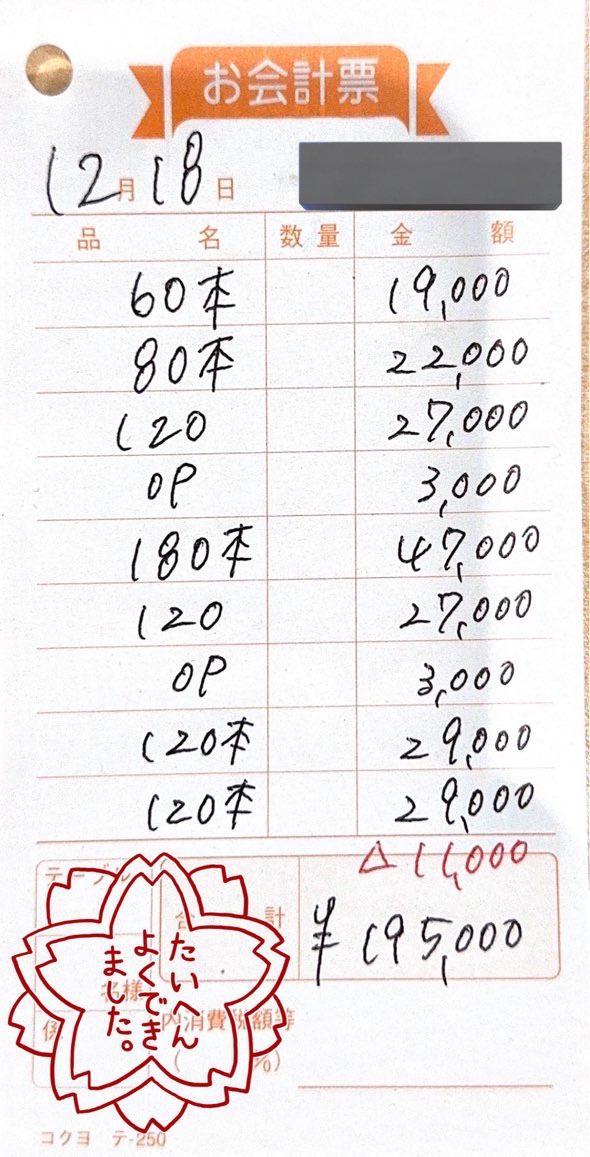 お会計票
12月18日
品名 数量 金額
60本 19,000
80本 22,000
120 27,000
OP 3,000
180本 47,000
120 27,000
OP 3,000
120本 29,000
120本 29,000
△11,000
テーブル
合計 ¥195,000
名様
係
内消費税額等
( %)
たいへん
よくでき
ました。
コクヨ テ-250